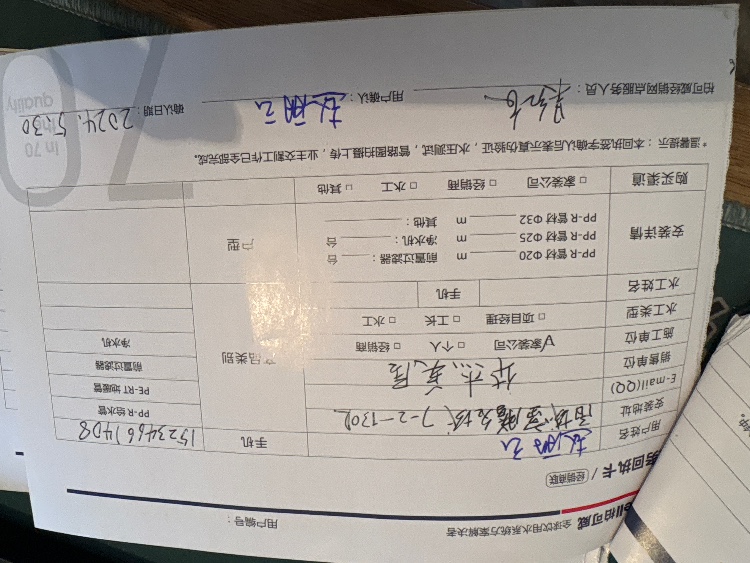 柏可威 全球饮用水系统方案解决者
用户编号：
务回执卡 / 经销商联
用户姓名 赵丽云 手机 15234661408
安装地址 7-2-1302
E-mail(QQ) PP-R 给水管
销售单位 PE-RT 地暖管
施工单位 √家装公司 □ 个人 □ 经销商 产品类别 前置过滤器
水工类型 □ 项目经理 □ 工长 □ 水工 净水机
水工姓名 手机
安装详情 PP-R 管材 Φ20 m 前置过滤器： 台
PP-R 管材 Φ25 m 净水机： 台
PP-R 管材 Φ32 m 其他：
户型
购买渠道 □ 家装公司 □ 经销商 □ 水工 □ 其他
*温馨提示：本回执签字确认后表示真伪验证，水压测试，管路图扫描上传，业主交割工作已全部完成。
柏可威经销网点服务人员： 用户确认：赵丽云 确认日期：2024.5.30
In 70
quality
70